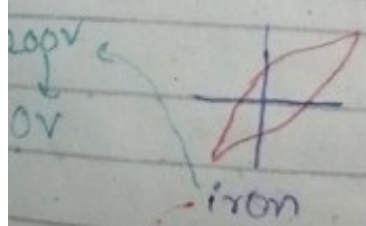 200V
0V
iron